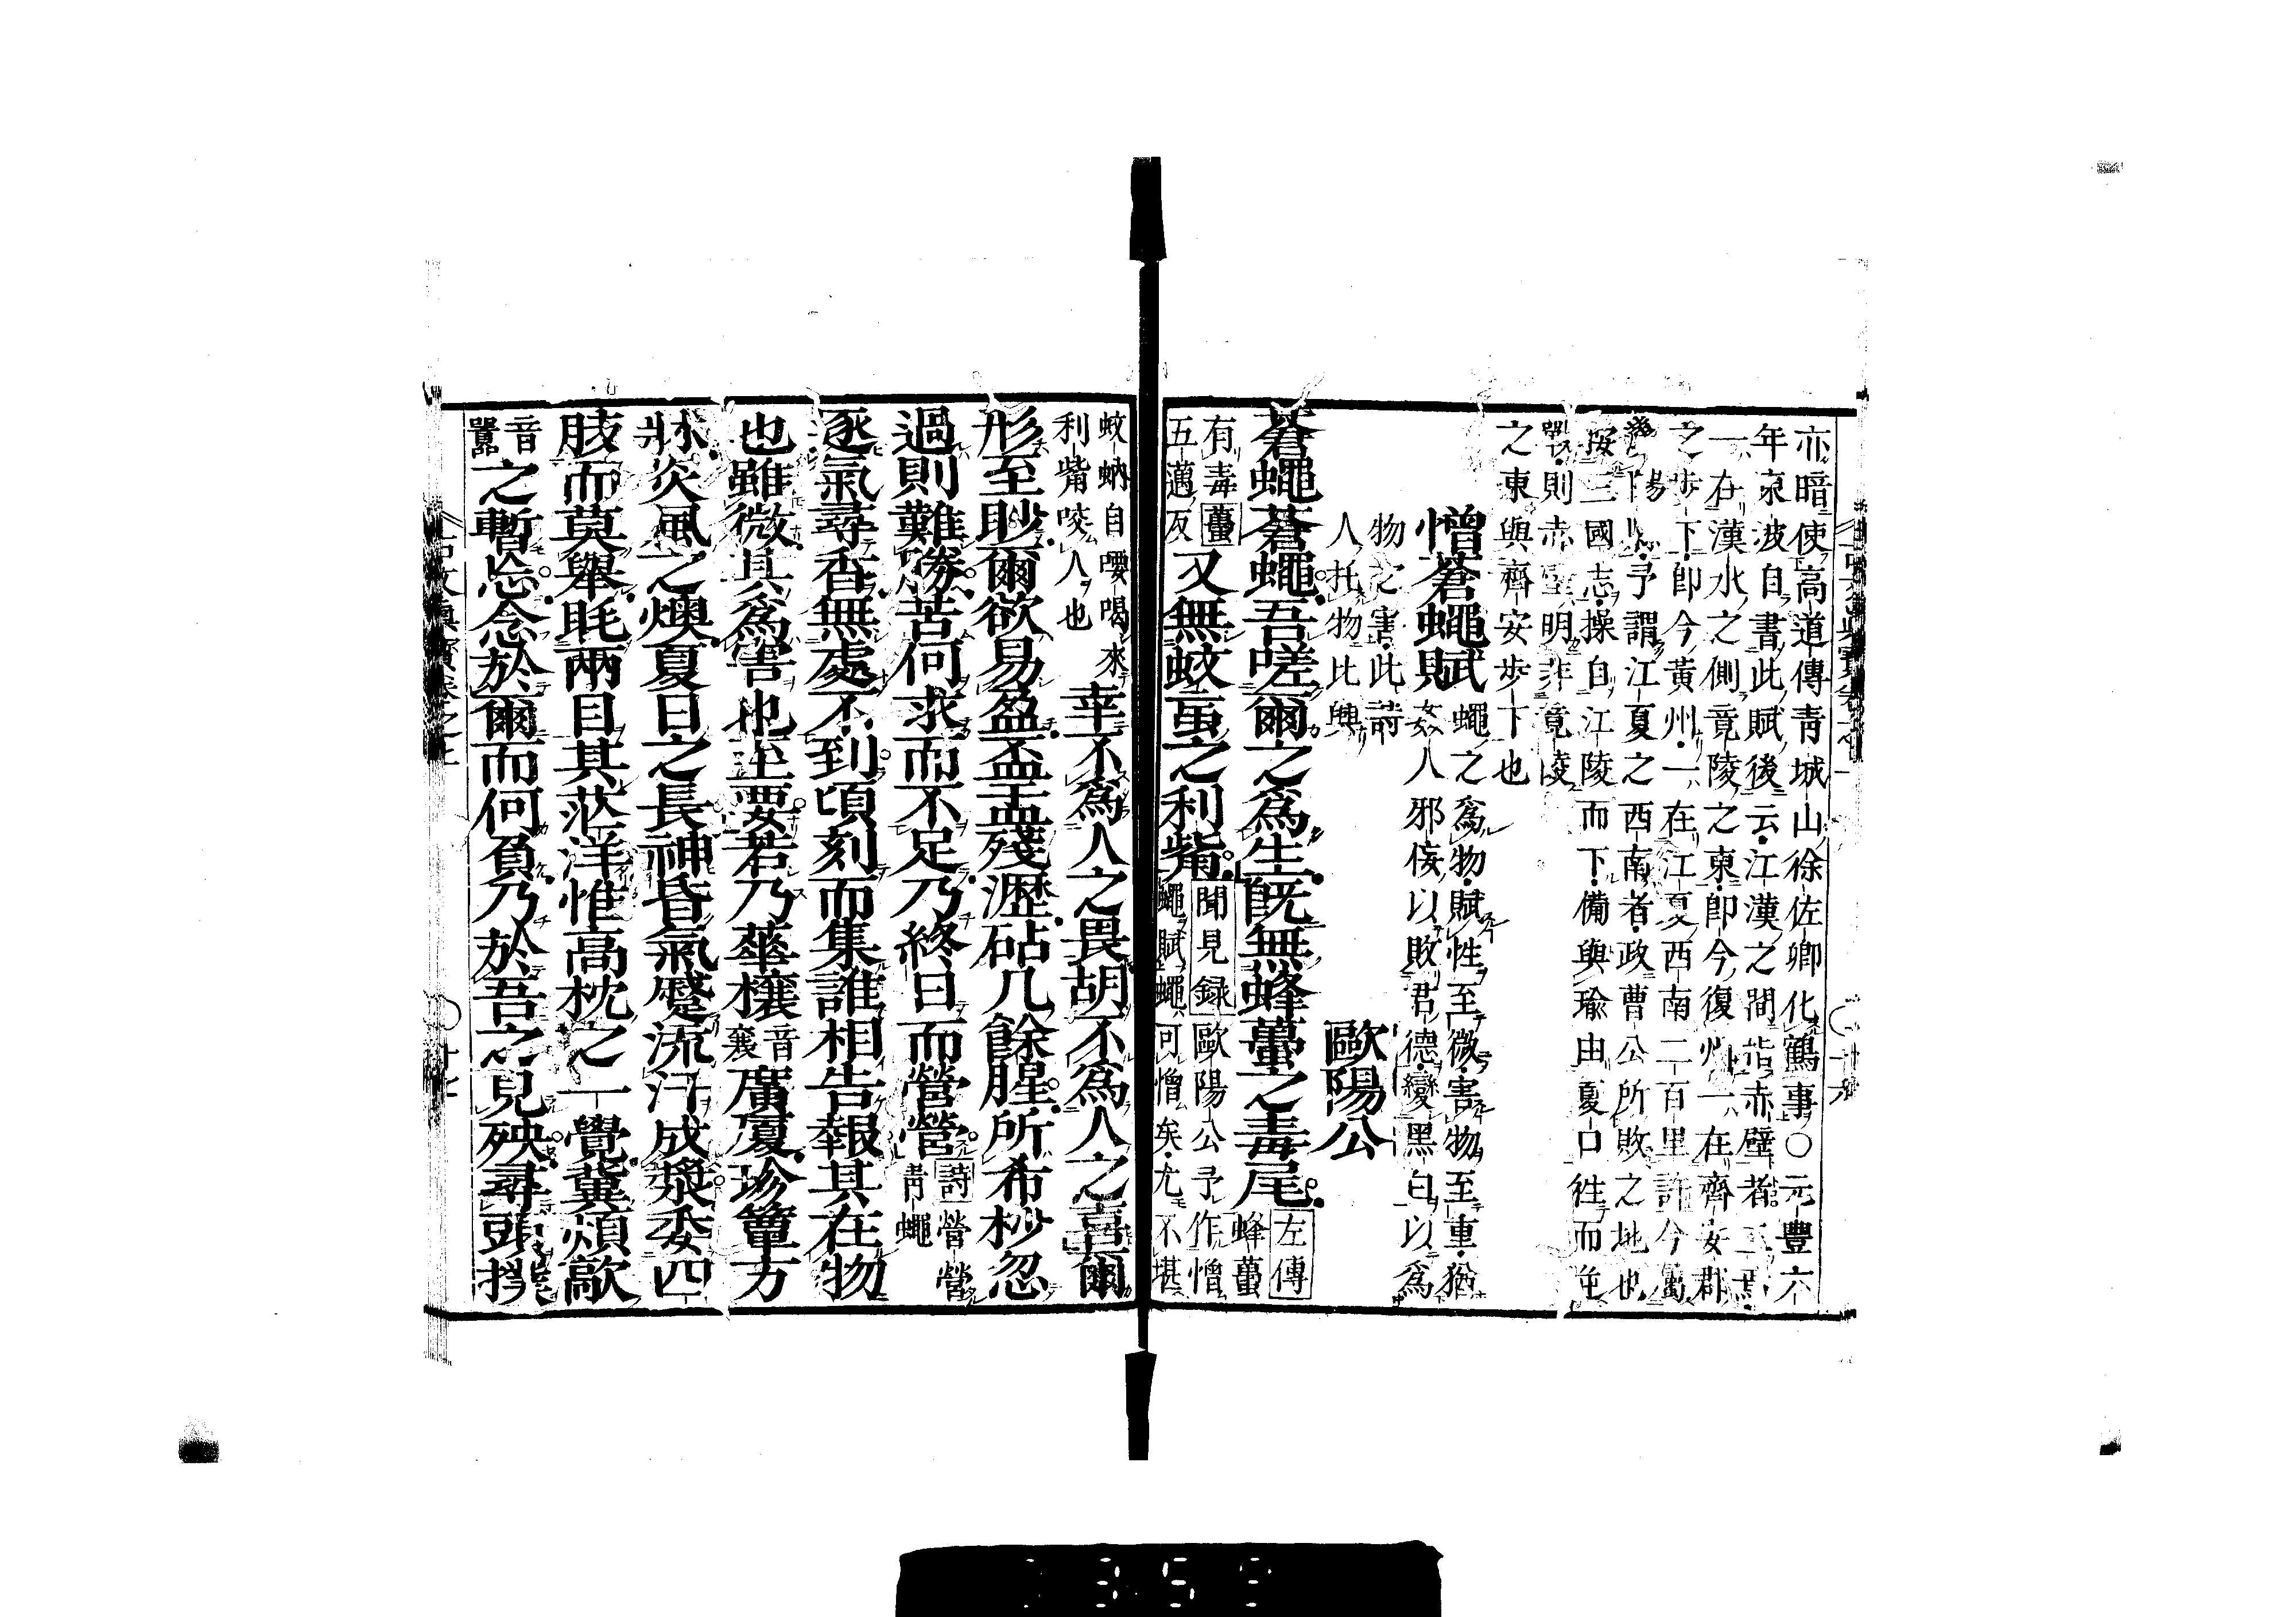 亦暗使高道傳青城山徐佐卿化鶴事○元豐六
年東波自書此賦後云江漢之間指赤壁者三焉
一在漢水之側竟陵之東即今復州一在齊安郡
之步下即今黃州一在江夏西南二百里許今屬
漢陽予謂江夏之西南者政曹公所敗之地也
按三國志操自江陵而下備與瑜由夏口往而逆
戰則赤壁明非竟陵
之東與齊安步下也
憎蒼蠅賦 蠅之爲物賦性至微害物至重猶
姦人邪侫以敗君德變黑白以爲
物之害此詩
人托物比興
歐陽公
蒼蠅蒼蠅吾嗟爾之爲生既無蜂蠆之毒尾 左傳蜂蠆
有毒蠆
五邁反
又無蚊蝱之利觜 聞見録歐陽公予作憎
蠅賦蠅可憎矣尤不堪
蚊蚋自嘤喝來
利觜咬人也
幸不爲人之畏胡不爲人之喜爾
形至眇爾欲易盈盃盂殘瀝砧几餘腥所希杪忽
過則難勝苦何求而不足乃終日而營營 詩營營青蠅
逐氣尋香無處不到頃刻而集誰相告報其在物
也雖微其爲害也至要若乃華榱 音衰 廣廈珍簟方
牀炎風之燠夏日之長神昏氣蹙流汗成漿委四
肢而莫舉眊兩目其茫洋惟高枕之一覺冀煩歊
音囂 之暫忘念於爾而何負乃於吾之見殃尋頭撲